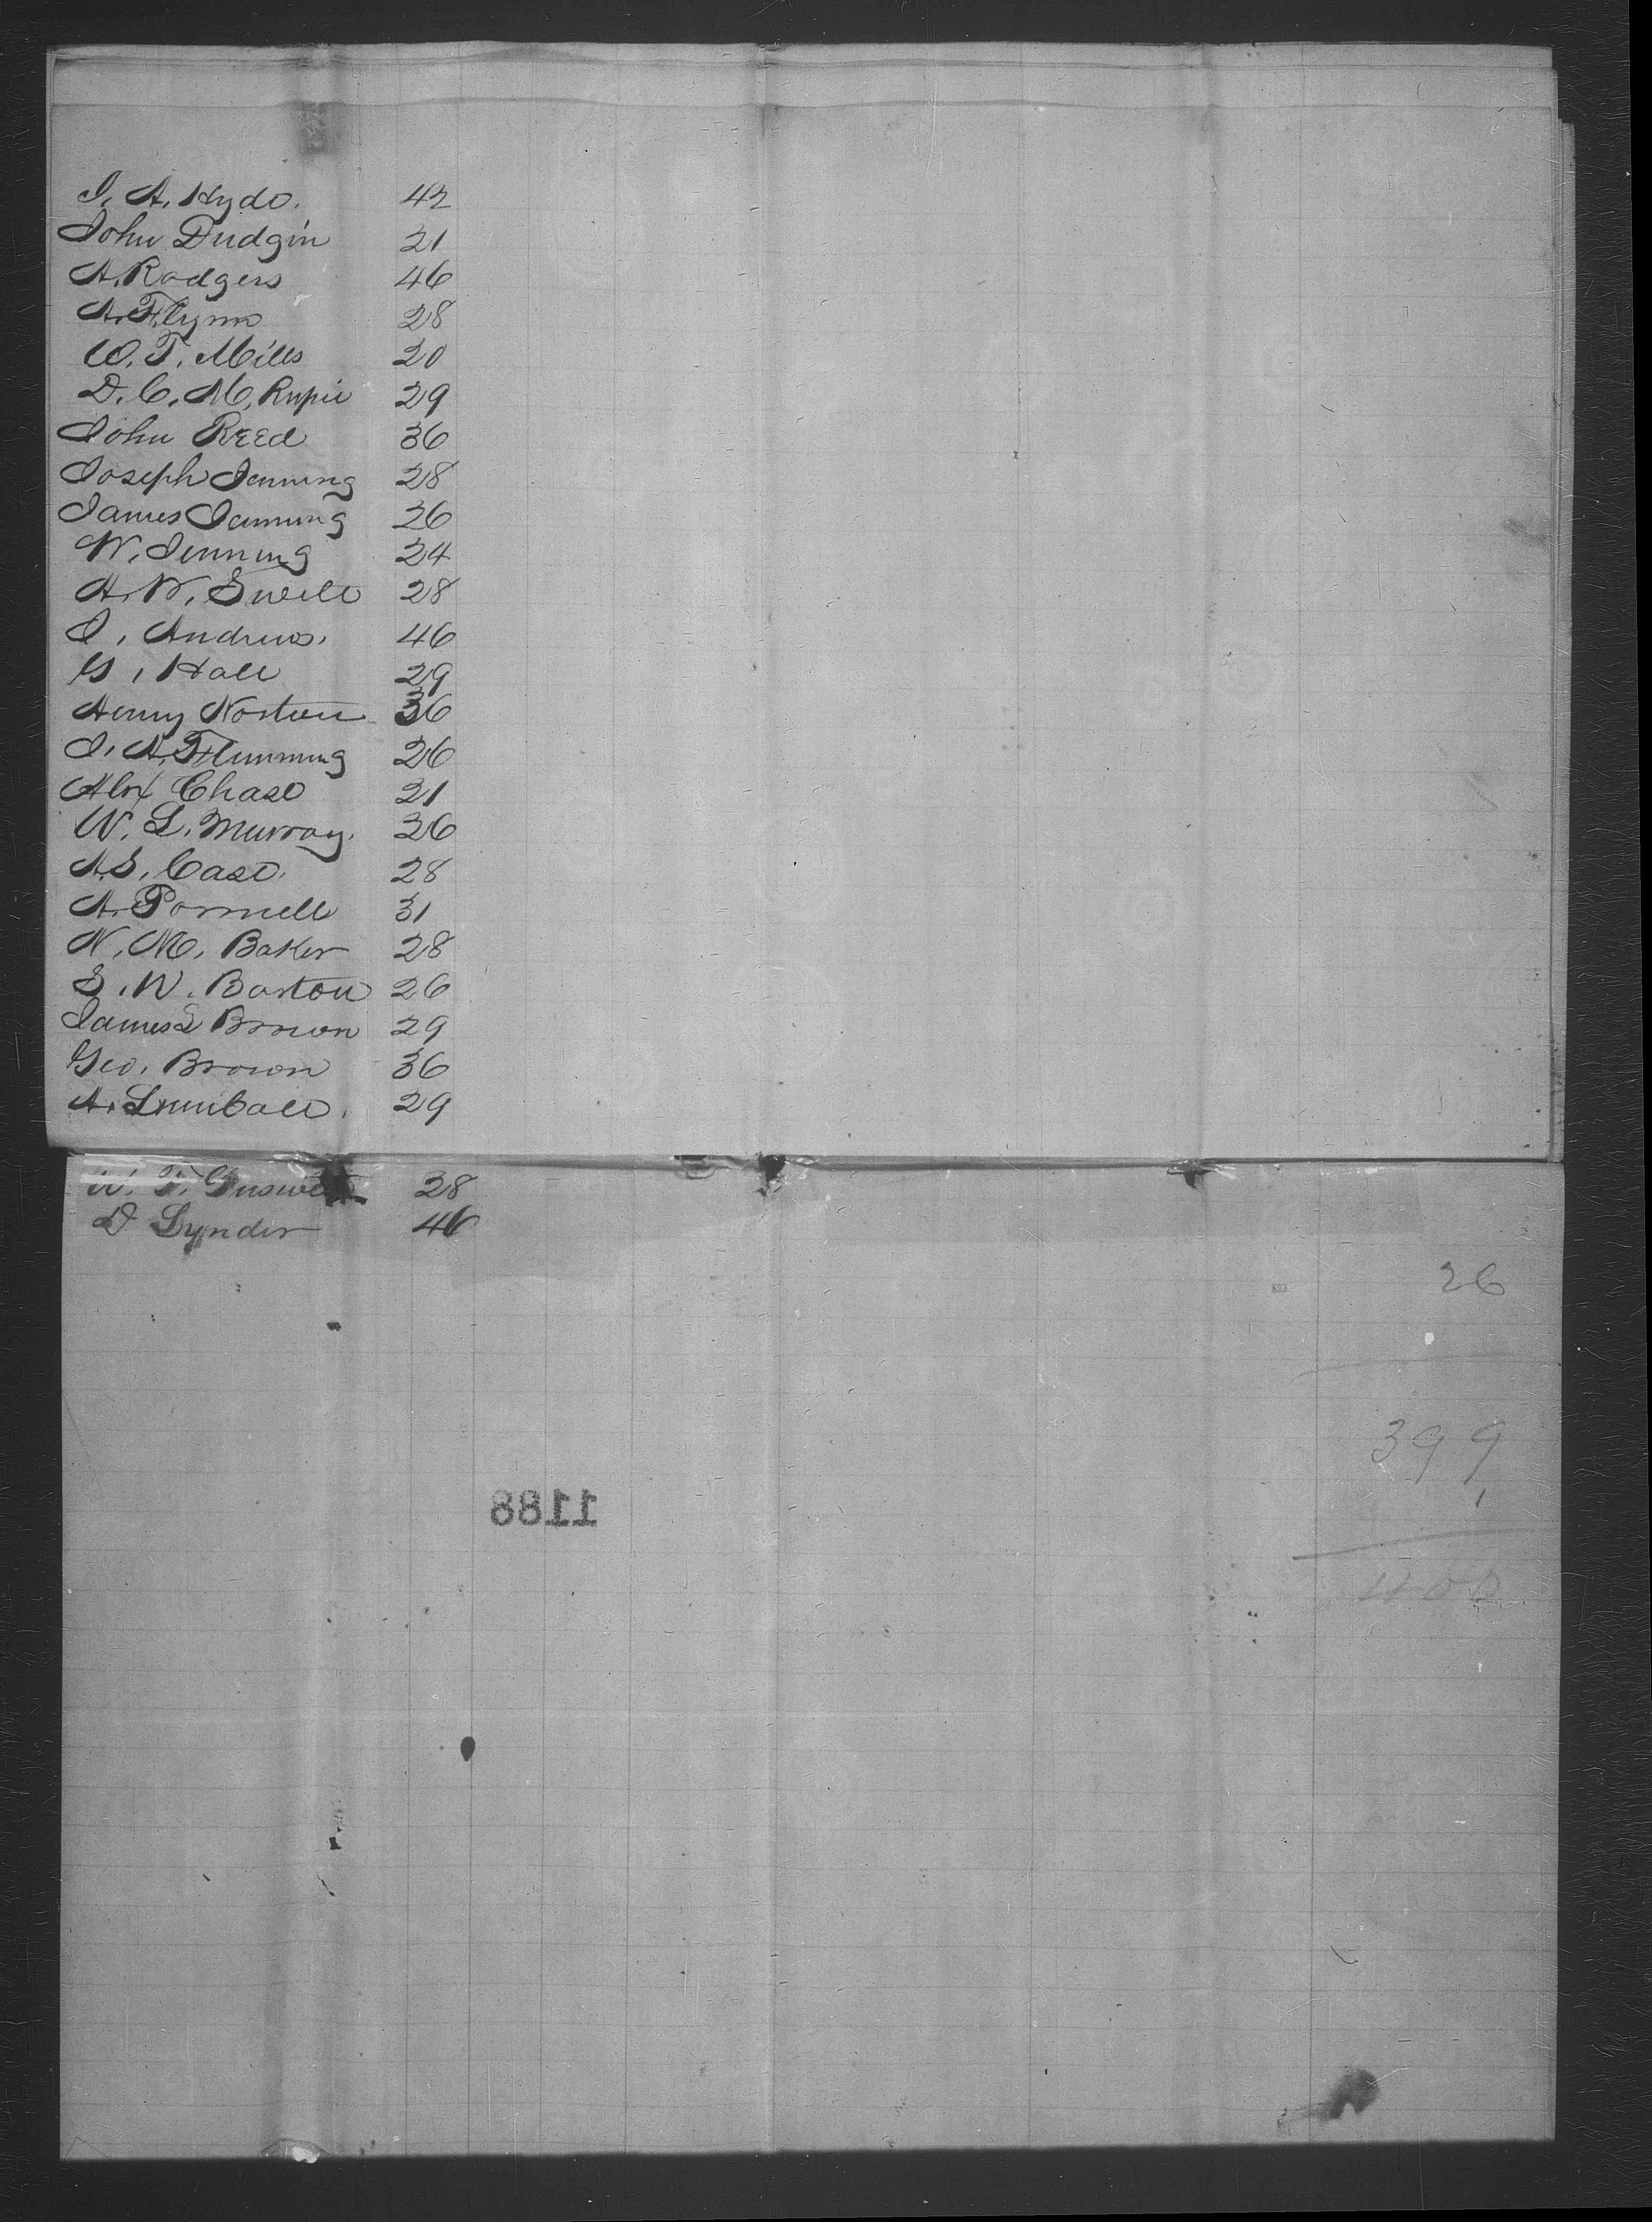 J. A. Hyde. 42
John Dudgin 21
A. Rodgers 46
A. Flynn 28
W. T. Mills 20
D. C. M. Rupie 29
John Reed 36
Joseph Jenning 28
James Jenning 26
W. Jenning 24
A. W. Swett 28
J. Andrews. 46
G. Hall 29
Henry Norton 36
J. A. Flemming 26
Alex Chase 21
W. L. Murray. 26
A. S. Case. 28
A. Pornell 31
N. M. Baker 28
S. W. Barton 26
James L Brown 29
Geo. Brown 36
A. 29
W. T. 28
D Synder 46
26
399
1
400
1188